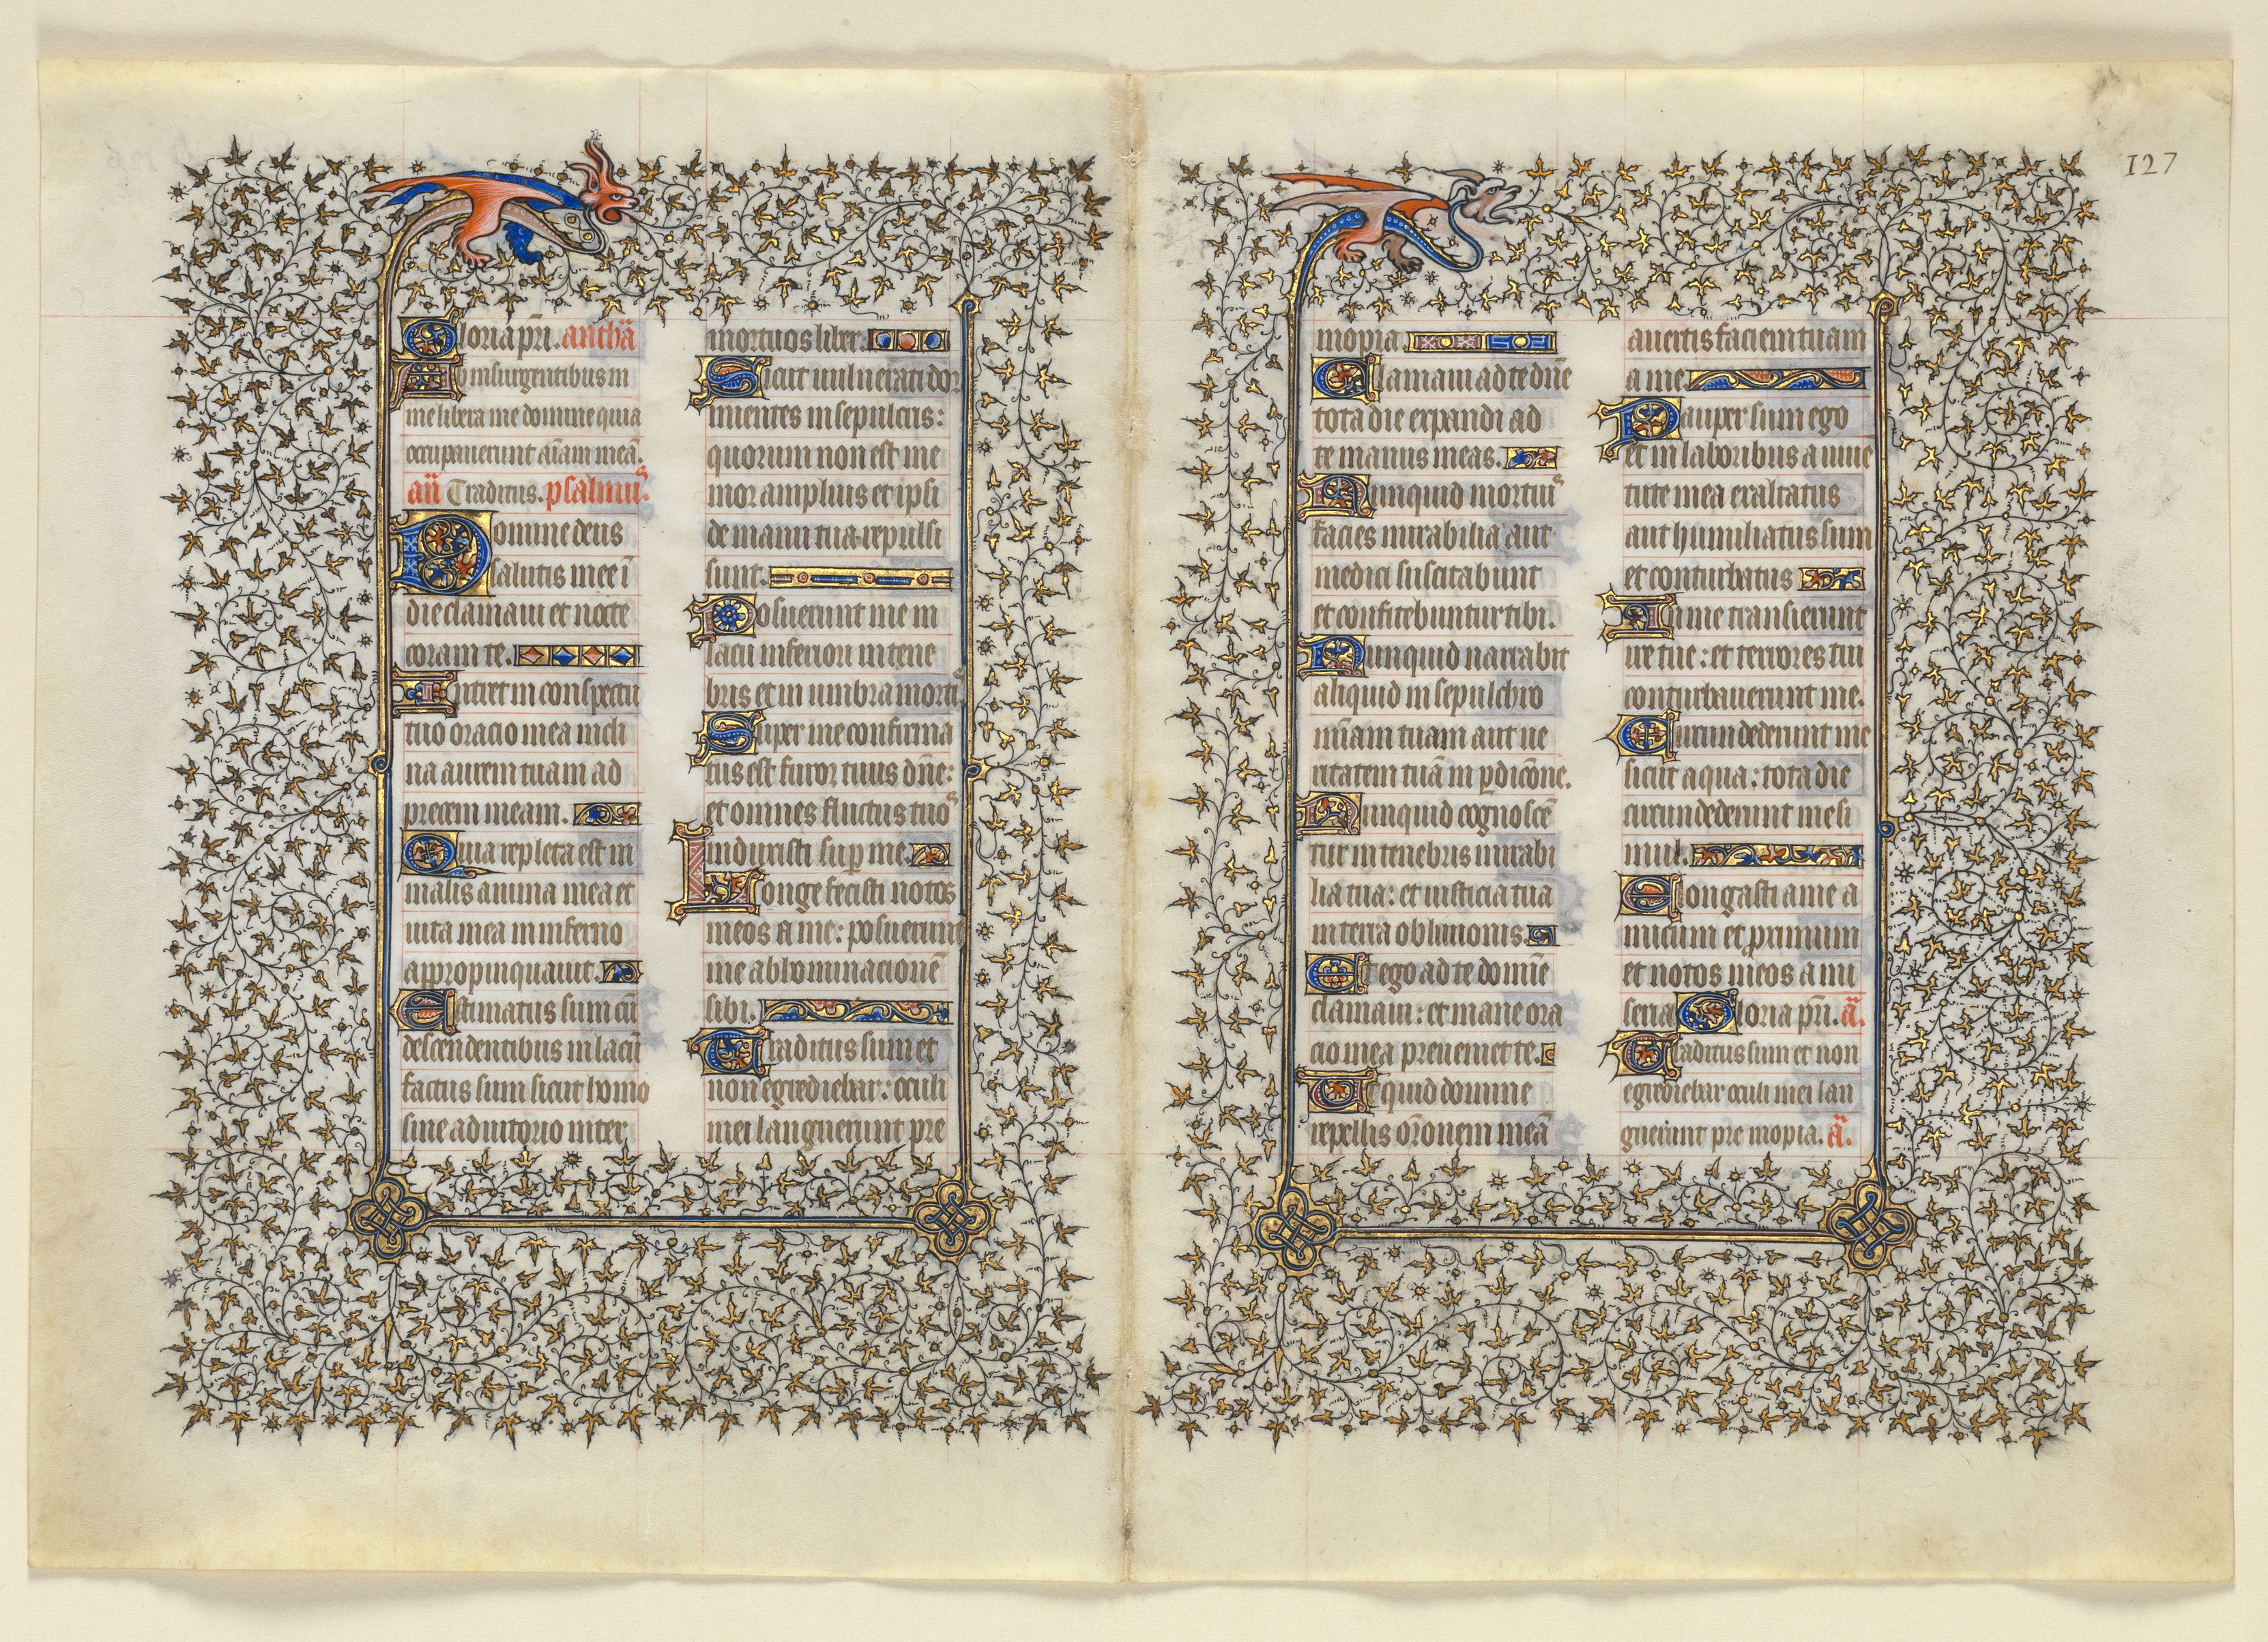 Gloria pr̄i. antħa
Ab insurgentibus in
me libera me domine quia
occupauerunt aīam meā.
an̄ Traditus. psalmus.
Domine deus
salutis mee ī
die clamaui et nocte
coram te.
Intret in conspectu
tuo oracio mea incli
na aurem tuam ad
precem meam.
Quia repleta est in
malis anima mea et
uita mea in inferno
appropinquauit.
Estimatus sum cū
descendentibus in lacū
factus sum sicut homo
sine adiutorio inter
mortuos liber.
Sicut uulnerati dor
mientes in sepulcris:
quorum non est me
mor amplius et ipsi
de manu tua repulsi
sunt.
Posuerunt me in
lacu inferiori in tene
bris et in umbra mortis
Super me confirma
tus est furor tuus dn̄e:
et omnes fluctus tuos
induxisti sup̱ me.
Longe fecisti notos
meos a me: posuerunt
me abhominacionē
sibi.
Traditus sum et
non egrediebar: oculi
mei languerunt pre
inopia.
Clamaui ad te dn̄e
tota die expandi ad
te manus meas.
Nunquid mortuis
facies mirabilia aut
medici suscitabunt
et confitebuntur tibi.
Nunquid narrabit
aliquid in sepulchro
mīam tuam aut ue
ritatem tuā in p̱dicōne.
Nunquid cognoscē
tur in tenebris mirabi
lia tua: et iusticia tua
in terra obliuionis.
Et ego ad te domīe
clamaui: et mane ora
cio mea preueniet te.
Ut quid domine
repellis ōronem meā
auertis faciem tuam
a me
Pauper sum ego
et in laboribus a iuue
tute mea exaltatus
aut humiliatus sum
et conturbatus
In me transierunt
ire tue: et terrores tui
conturbauerunt me.
Circundederunt me
sicut aqua: tota die
circundederunt me si
mul.
Elongasti a me a
micum et p̱ximum
et notos meos a mi
seria Gloria pr̄i. ā.
Traditus sum et non
egrediebar oculi mei lan
guerunt pre inopia. ā.
127